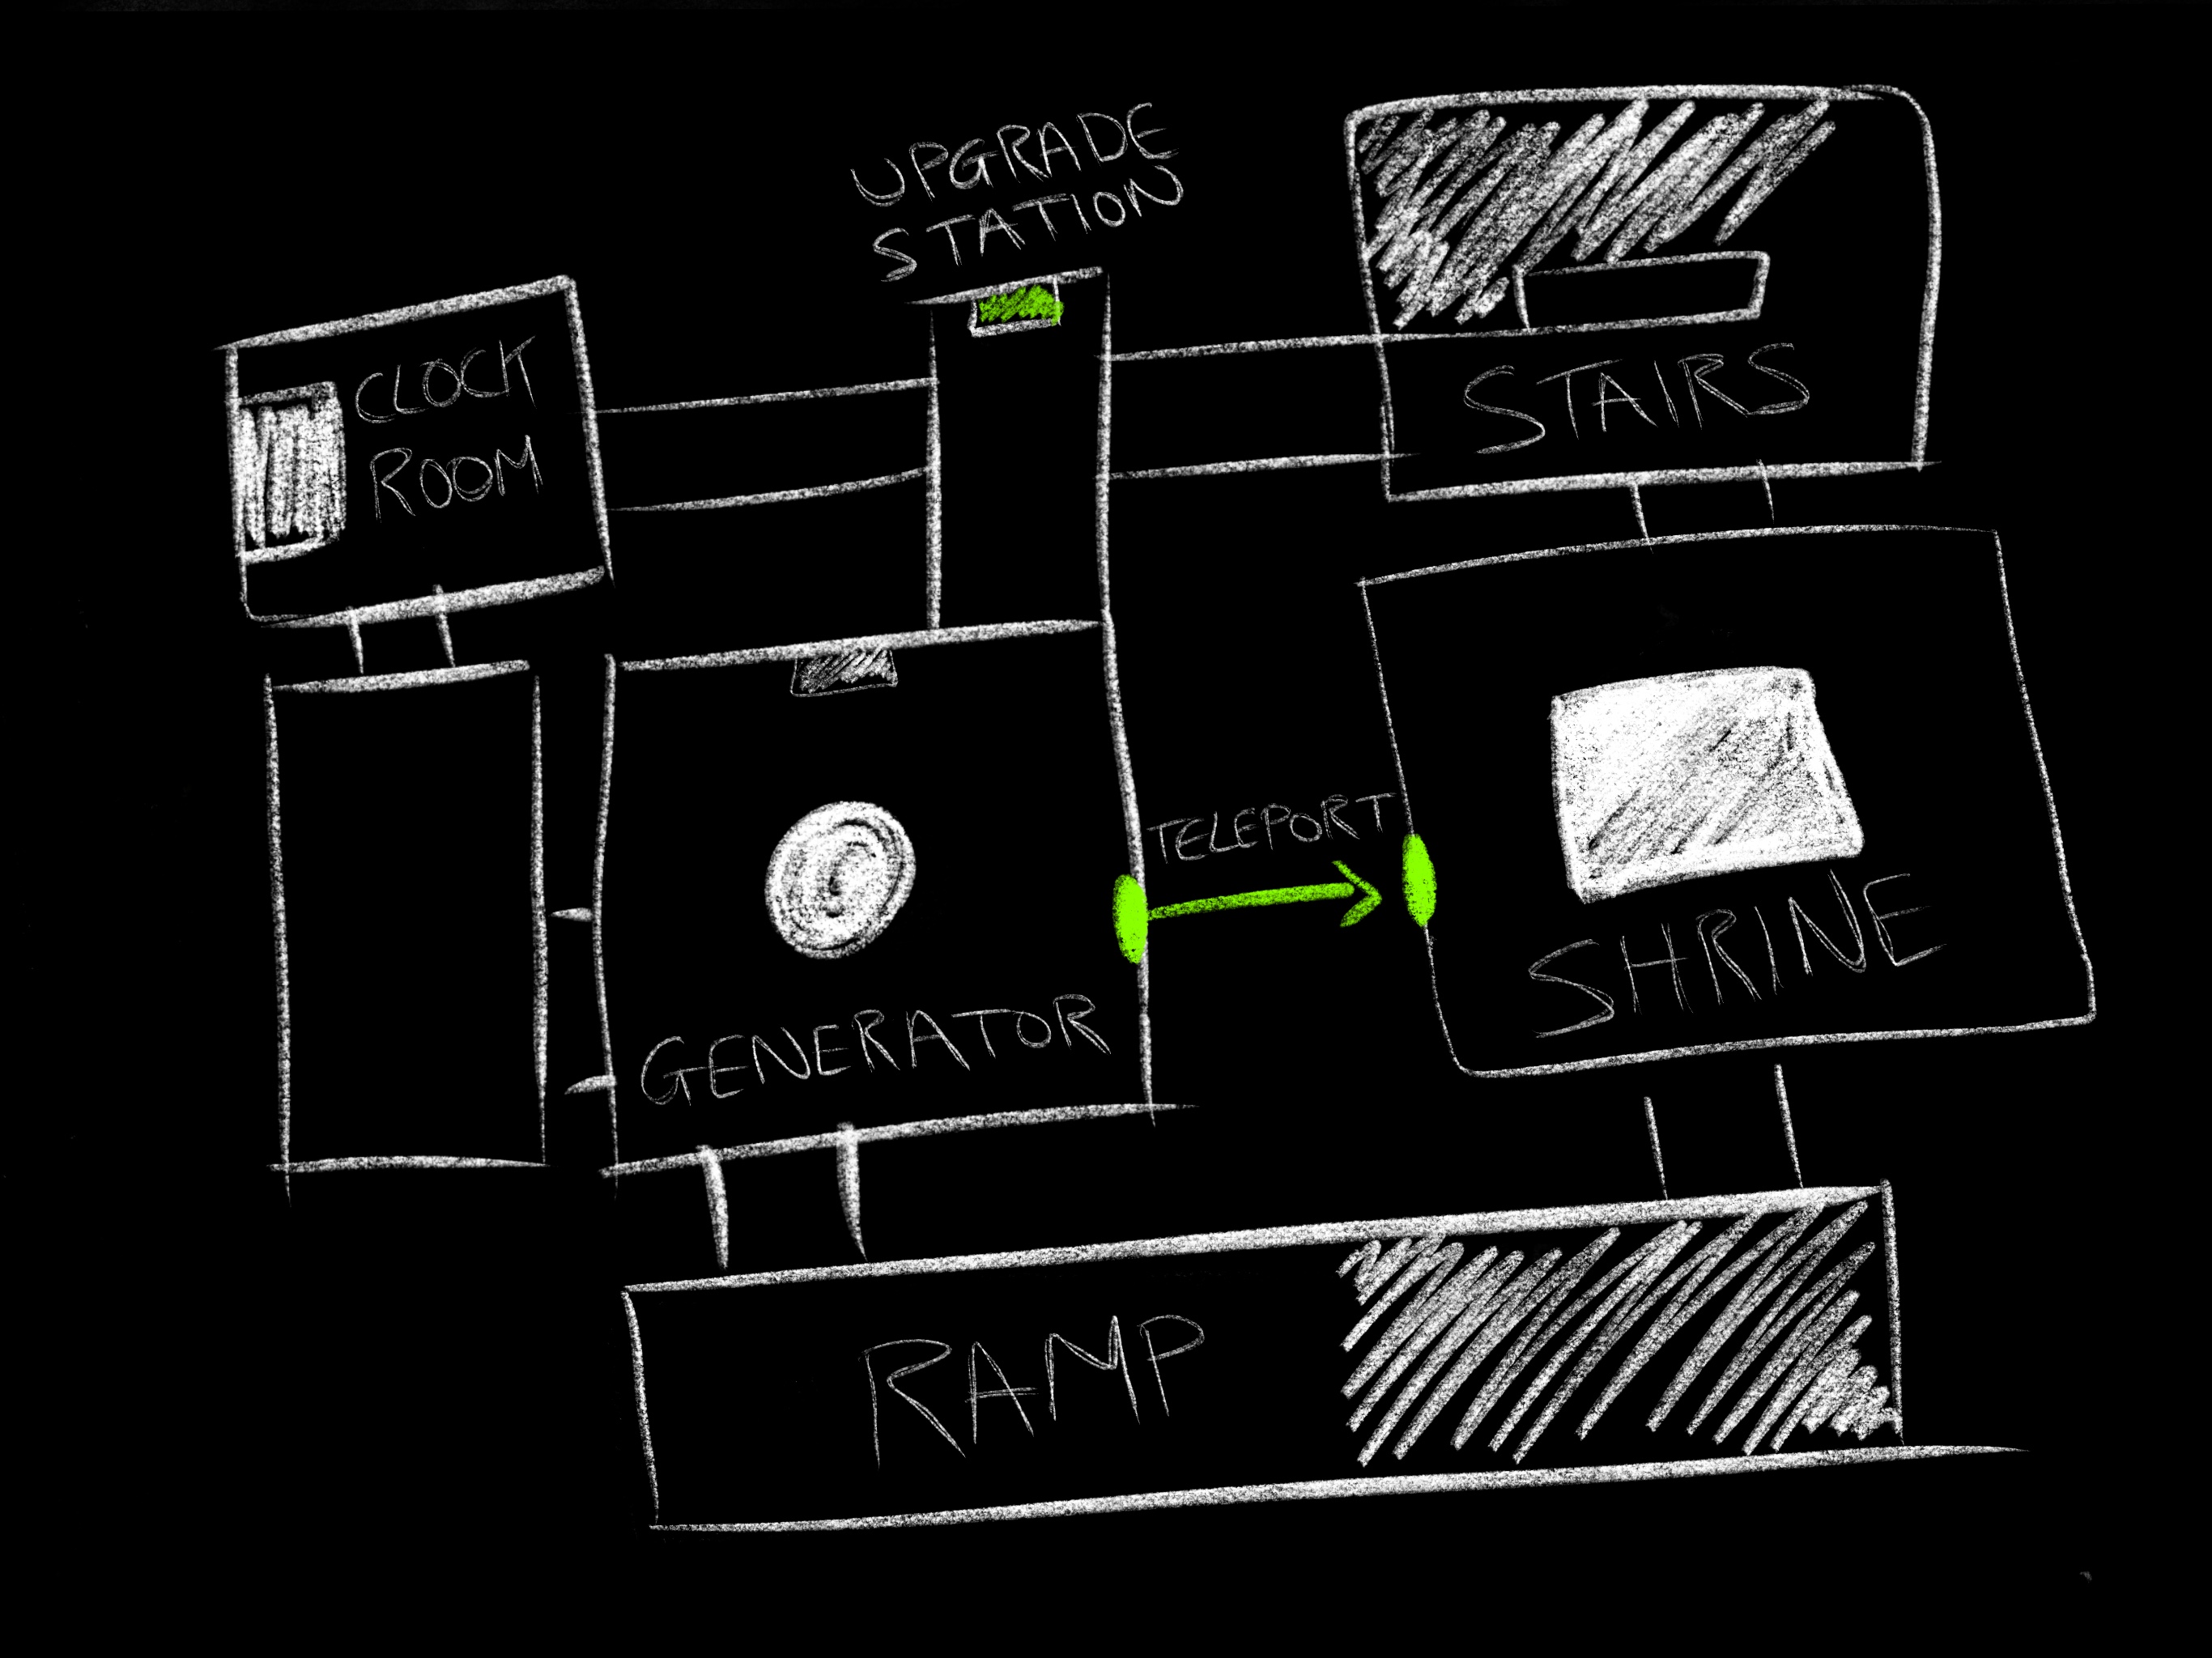 UPGRADE
STATION
CLOCK
ROOM
STAIRS
TELEPORT
GENERATOR
SHRINE
RAMP